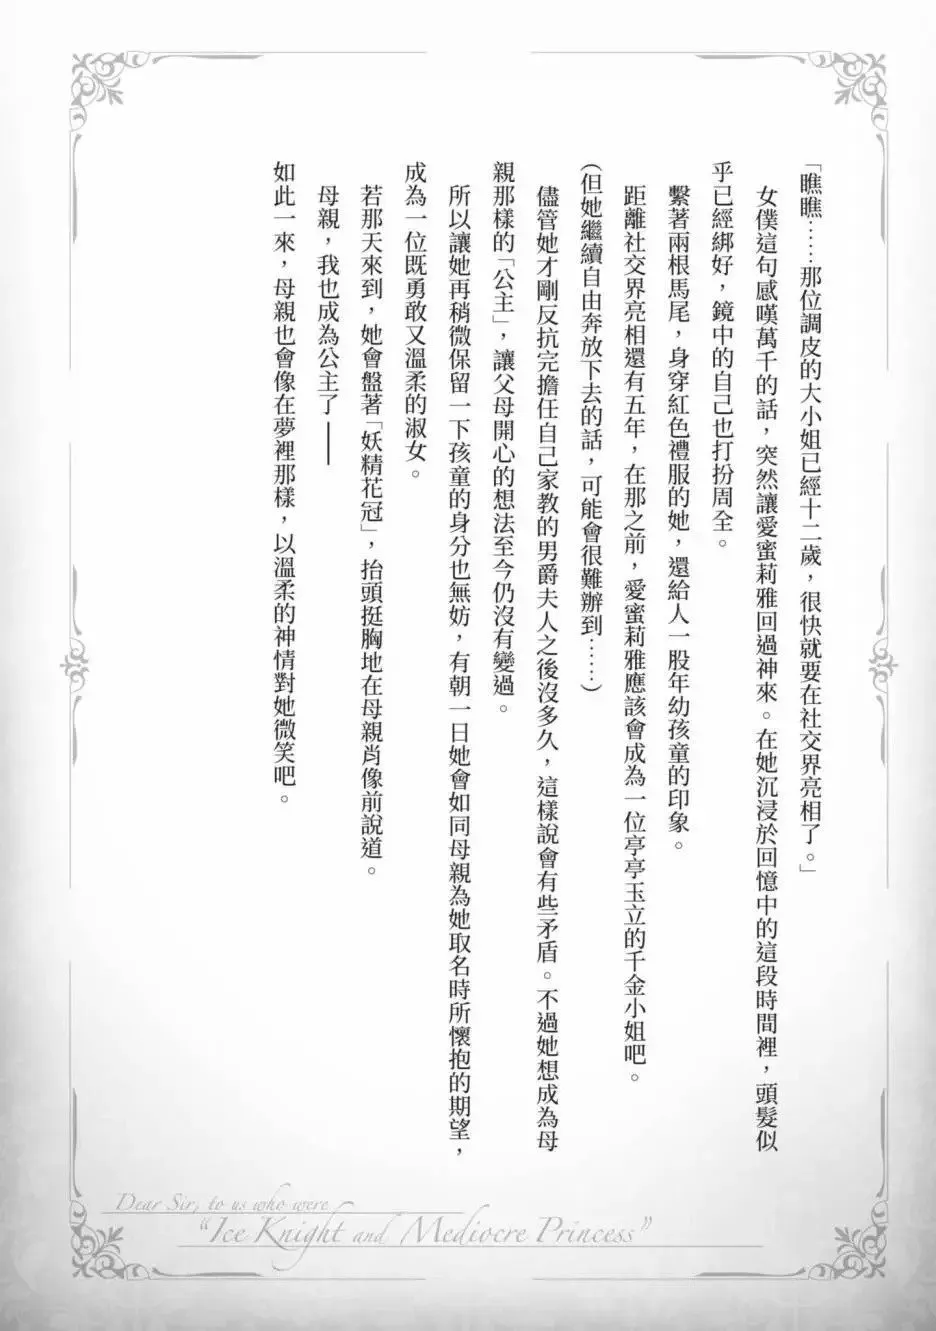 「瞧瞧……那位調皮的大小姐已經十二歲，很快就要在社交界亮相了。」
女僕這句感嘆萬千的話，突然讓愛蜜莉雅回過神來。在她沉浸於回憶中的這段時間裡，頭髮似
乎已經綁好，鏡中的自己也打扮周全。
繫著兩根馬尾，身穿紅色禮服的她，還給人一股年幼孩童的印象。
距離社交界亮相還有五年，在那之前，愛蜜莉雅應該會成為一位亭亭玉立的千金小姐吧。
（但她繼續自由奔放下去的話，可能會很難辦到……）
儘管她才剛反抗完擔任自己家教的男爵夫人之後沒多久，這樣說會有些矛盾。不過她想成為母
親那樣的「公主」，讓父母開心的想法至今仍沒有變過。
所以讓她再稍微保留一下孩童的身分也無妨，有朝一日她會如同母親為她取名時所懷抱的期望，
成為一位既勇敢又溫柔的淑女。
若那天來到，她會盤著「妖精花冠」，抬頭挺胸地在母親肖像前說道。
母親，我也成為公主了——
如此一來，母親也會像在夢裡那樣，以溫柔的神情對她微笑吧。
Dear Sir, to us who were
"Ice Knight and Mediocre Princess"